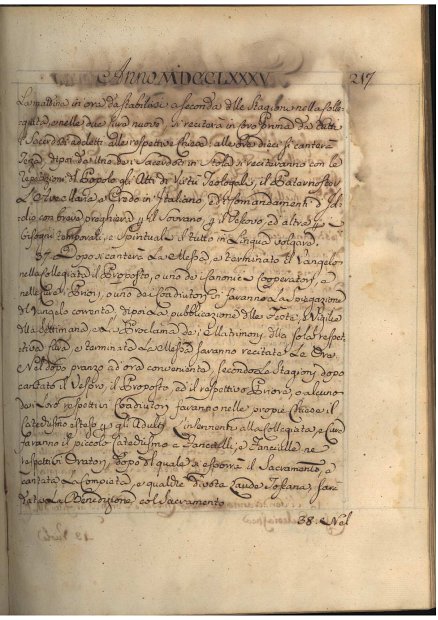 Anno MDCCLXXXV 217
La mattina in ora da stabilirsi a seconda delle Stagioni nella Colle-
giata, e nelle due Cure nuove si reciterà in Coro Prima da tutti
i Sacerdoti addetti alle respettive Chiese: alle ore dieci si canterà
Terza, dipoi da uno dei Sacerdoti in Stola si reciteranno con le
repetizioni del Popolo gli Atti di Virtù Teologali, il Paternoster
L'Ave Maria, e Credo in Italiano, i Comandamenti d'Id-
dio con breve preghiera p. il Sovrano, p. il Vescovo, ed altra p. i
bisogni temporali, e Spirituali il tutto in Lingua volgare.
37. Dopo si canterà La Messa, e terminato il Vangelo
nella Collegiata il Proposto, o uno dei Canonici Cooperatori, e
nelle Cure i Priori, o uno dei Coadiutori faranno La Spiegazione
del Vangelo corrente, dipoi La pubblicazione delle Feste, e Vigilie
della Settimana, e La Proclama dei Matrimoni della sola respet-
tiva Cura, e terminata La Messa faranno recitare
Nel dopo pranzo ad ora conveniente, secondo Le Stagioni dopo
cantato il Vespro, il Proposto, ed il respettivo Priore, o alcuno
dei Loro respettivi Coadiutori faranno nelle proprie Chiese il
Catechismo p. gli Adulti, alla Collegiata, e Cure
faranno il piccolo Catechismo a Fanciulli, e Fanciulle ne
respettivi Oratori, dopo il quale si esporrà il Sacramento, e
cantata La Compieta, e qualche divota Laude Toscana, sarà
data La Benedizione col Sacramento
38. Nel